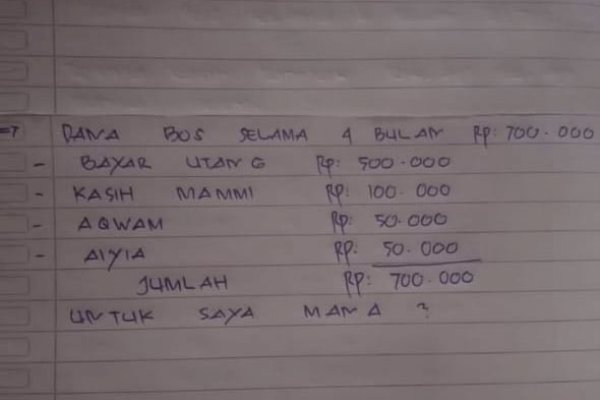 =7 DANA BOS SELAMA 4 BULAN Rp: 700.000
- BAYAR UTANG Rp: 500.000
- KASIH MAMMI Rp: 100.000
- AQWAM Rp: 50.000
- AIYIA Rp: 50.000
JUMLAH Rp: 700.000
UNTUK SAYA MANA ?